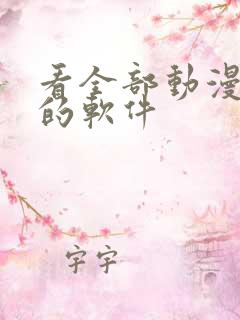 看全部動漫
的軟件
宇宇